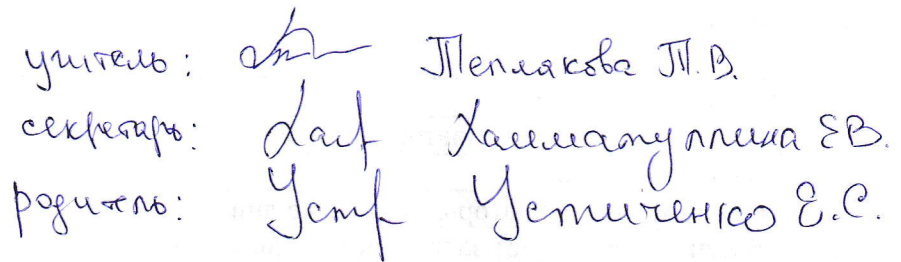 учитель: Теплякова Т.В.
секретарь: Хайматуллина Е.В.
родитель: Устиченко Е.С.